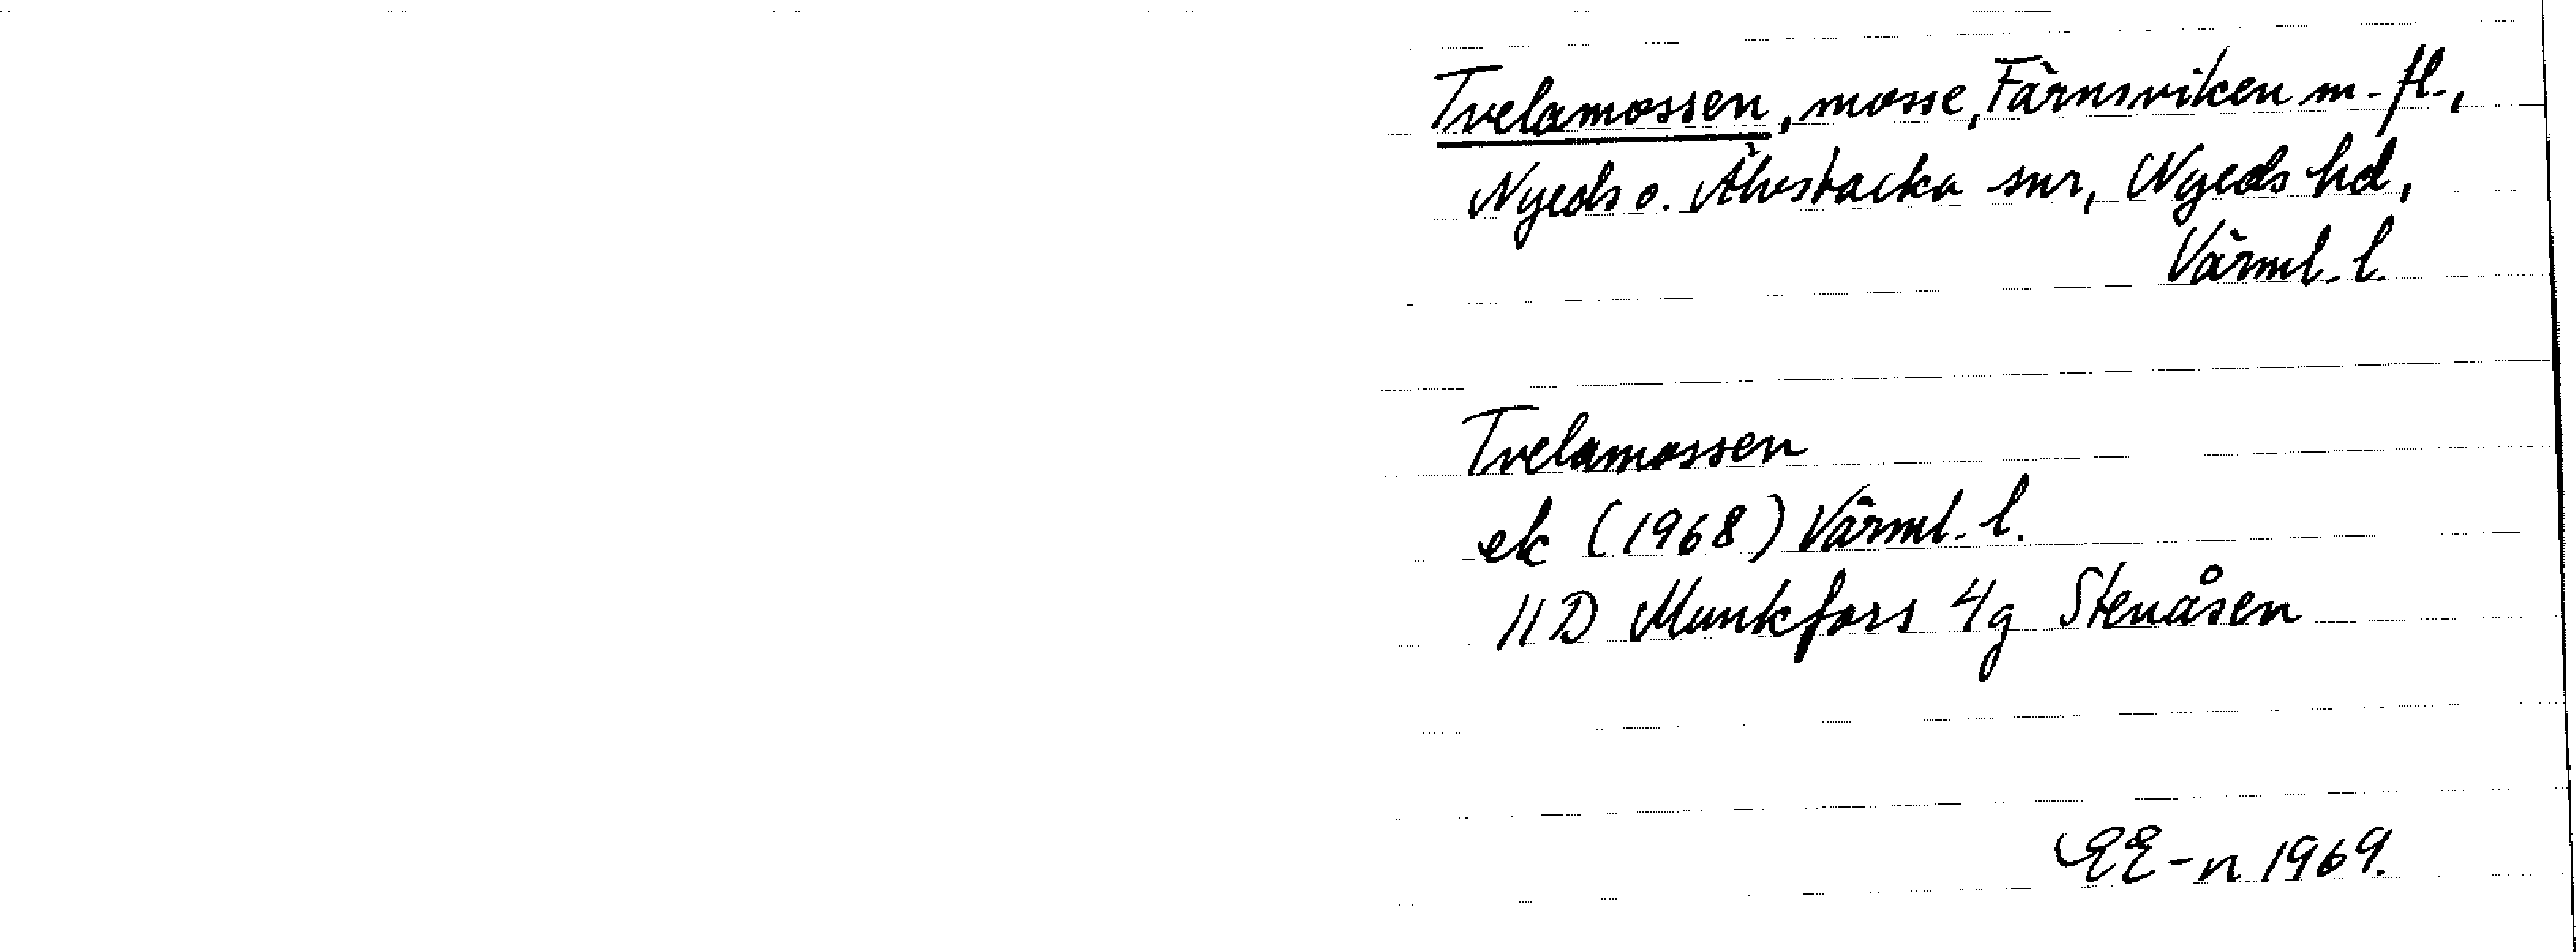 Tvelamossen, mosse, Färnsviken m. fl.,
Nyeds o. Älvsbacka snr, Nyeds hd,
Värml. l.
Tvelamossen
ek (1968) Värml. l.
11D Munkfors 4g Stenåsen
EE-n 1969.